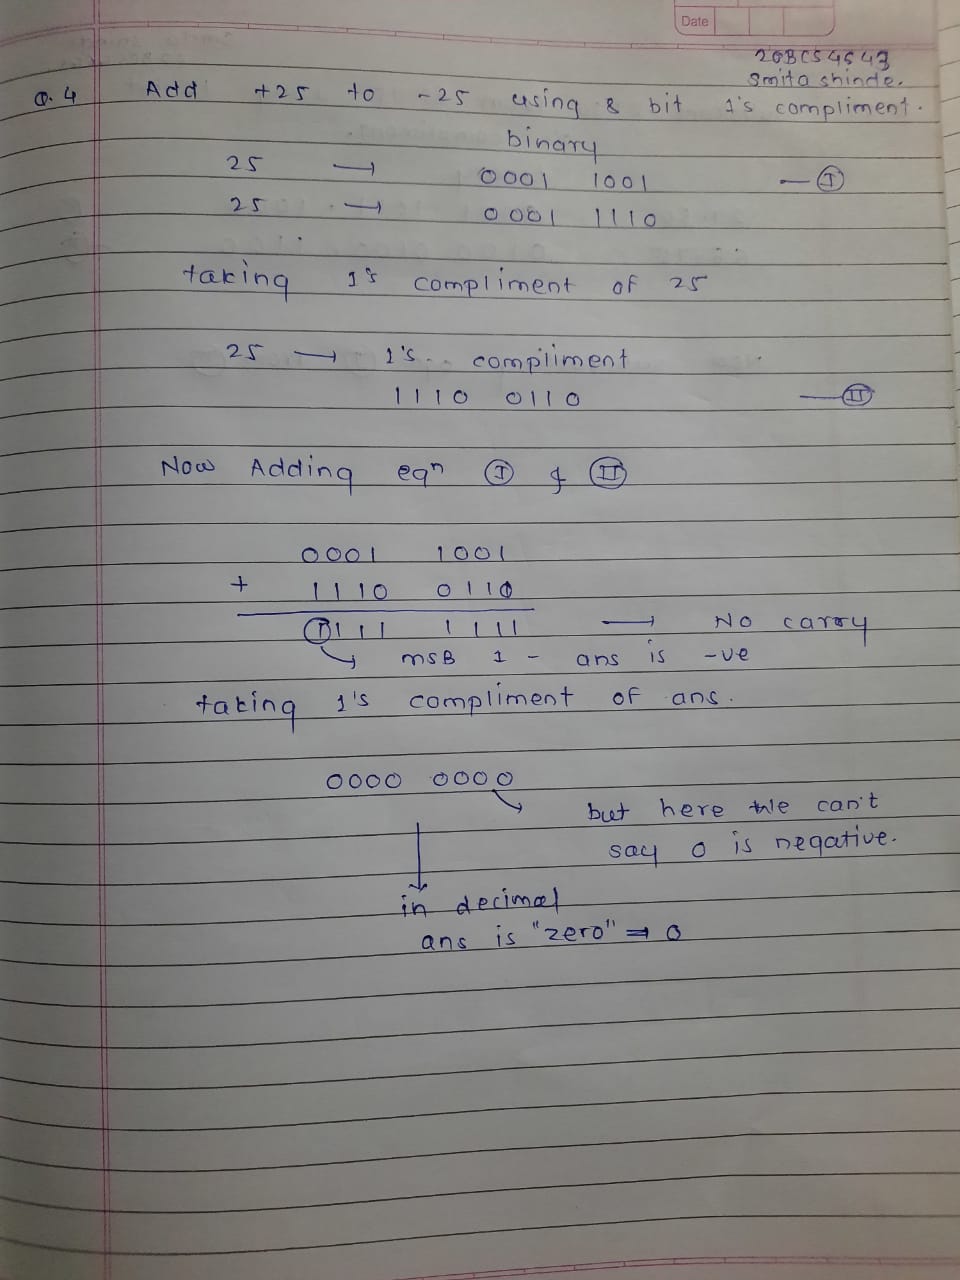 Date
20BCS4643
Smita shinde.
Q. 4 Add +25 to -25 using 8 bit 1's compliment.
binary
25 → 0001 1001 — I
25 → 0001 1110
taking 1's compliment of 25
25 → 1's compliment
1110 0110 — II
Now Adding eqn I & II
0001 1001
+ 1110 0110
1111 1111 → No carry
→ MSB 1 - ans is -ve
taking 1's compliment of ans.
0000 0000
but here we can't
say 0 is negative.
in decimal
ans is "zero" ⇒ 0